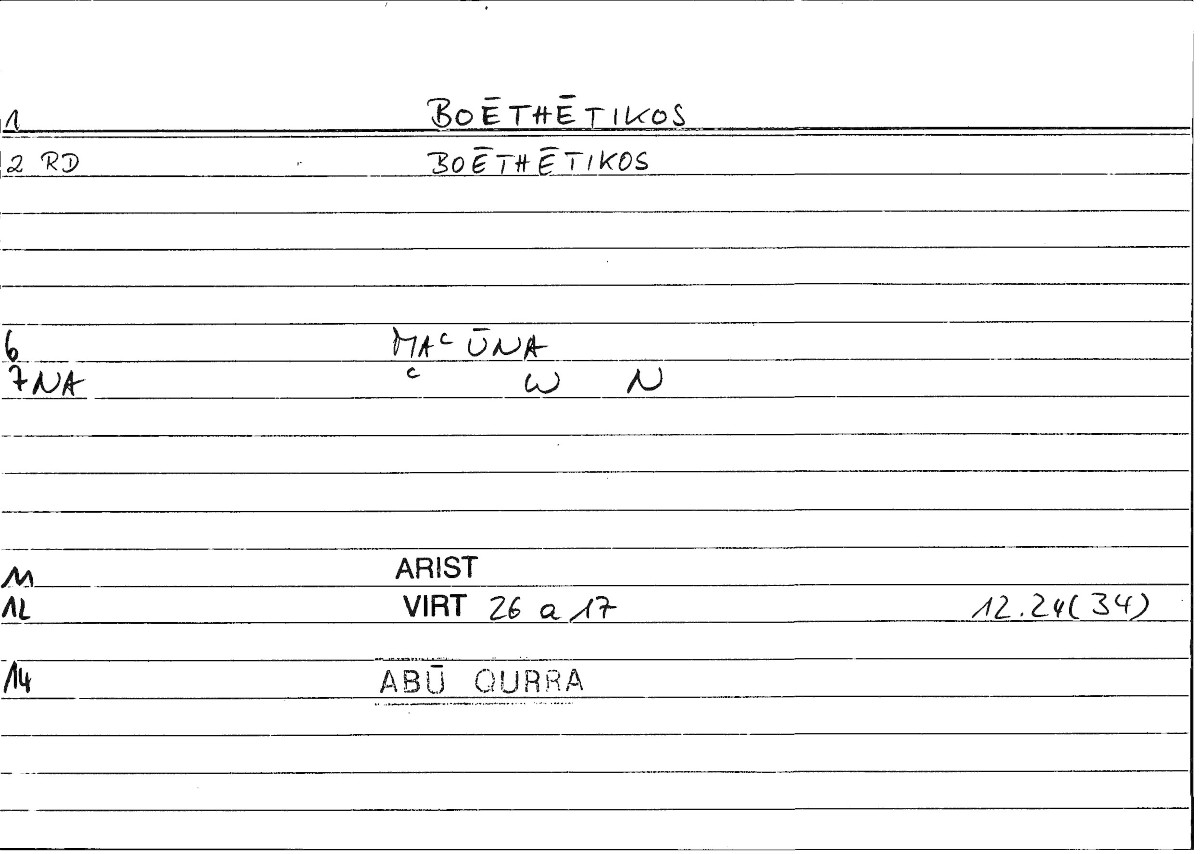 1 BOĒTHĒTIKOS
2 RD BOĒTHĒTIKOS
6 MAᶜ ŪNA
7 NA ᶜ W N
11 ARIST
12 VIRT 26 a 17 12.24(34)
14 ABŪ QURRA